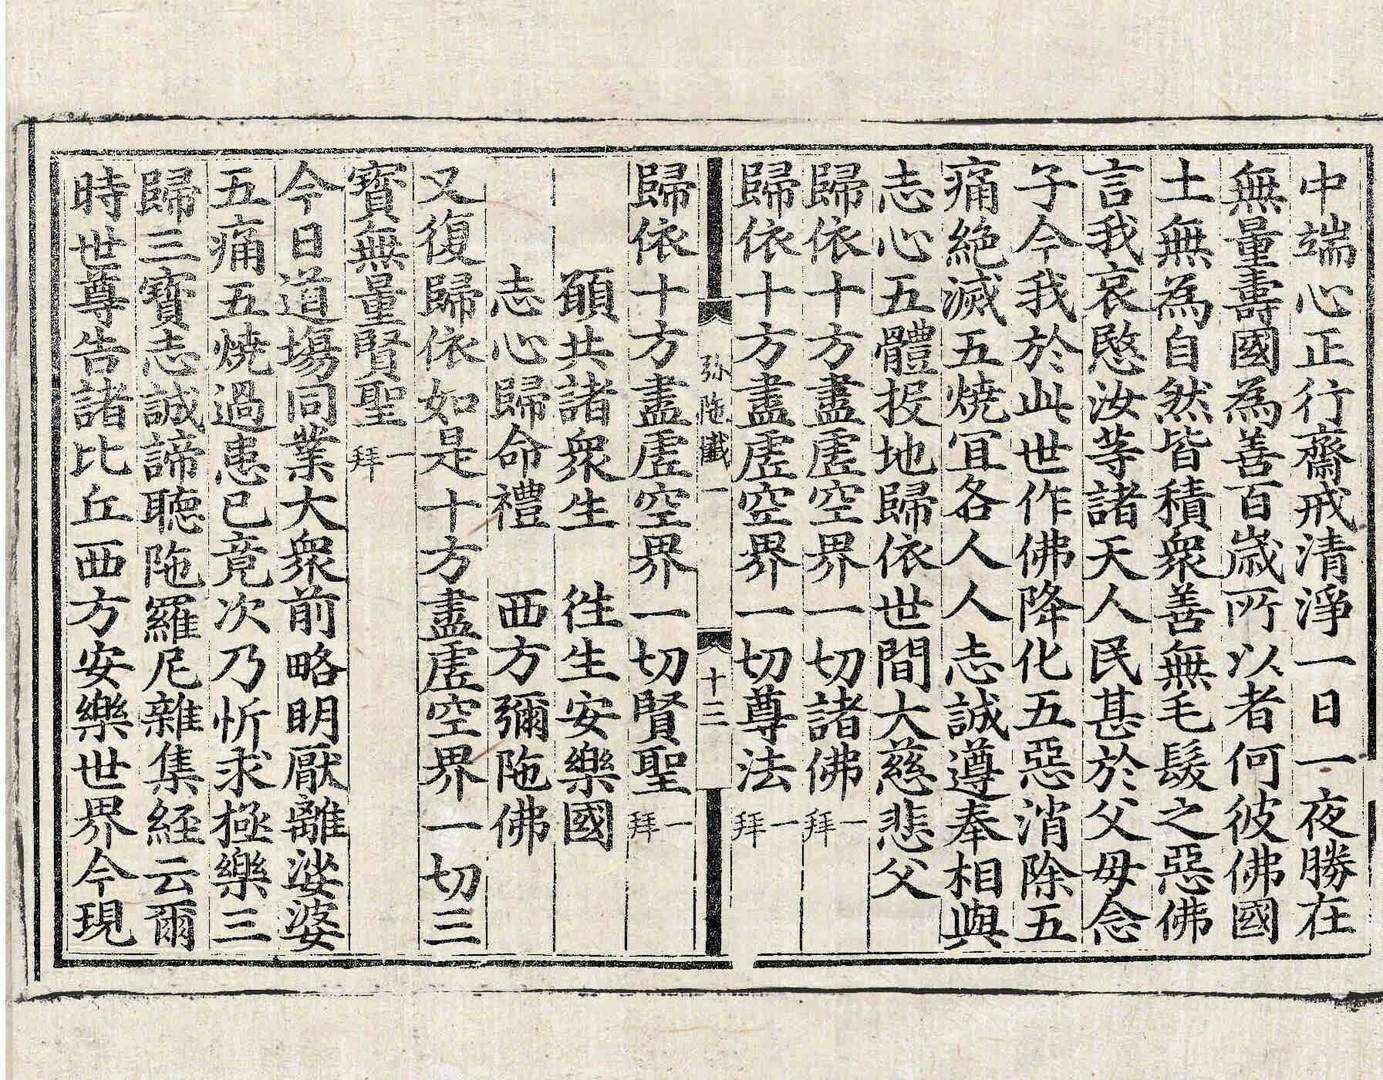 中端心正行齋戒清淨一日一夜勝在
無量壽國為善百歲所以者何彼佛國
土無為自然皆積衆善無毛髮之惡佛
言我哀愍汝等諸天人民甚於父母念
子今我於此世作佛降化五惡消除五
痛絕滅五燒冝各人人志誠遵奉相與
志心五體投地歸依世間大慈悲父
歸依十方盡虛空界一切諸佛 一拜
歸依十方盡虛空界一切尊法 一拜
弥陁懺一 十三
歸依十方盡虛空界一切賢聖 一拜
願共諸衆生 徃生安樂國
志心歸命禮 西方彌陁佛
又復歸依如是十方盡虛空界一切三
寳無量賢聖 一拜
今日道塲同業大衆前略明厭離娑婆
五痛五燒過患已竟次乃忻求極樂三
歸三寳志誠諦聽陁羅尼雜集経云爾
時世尊告諸比丘西方安樂世界今現